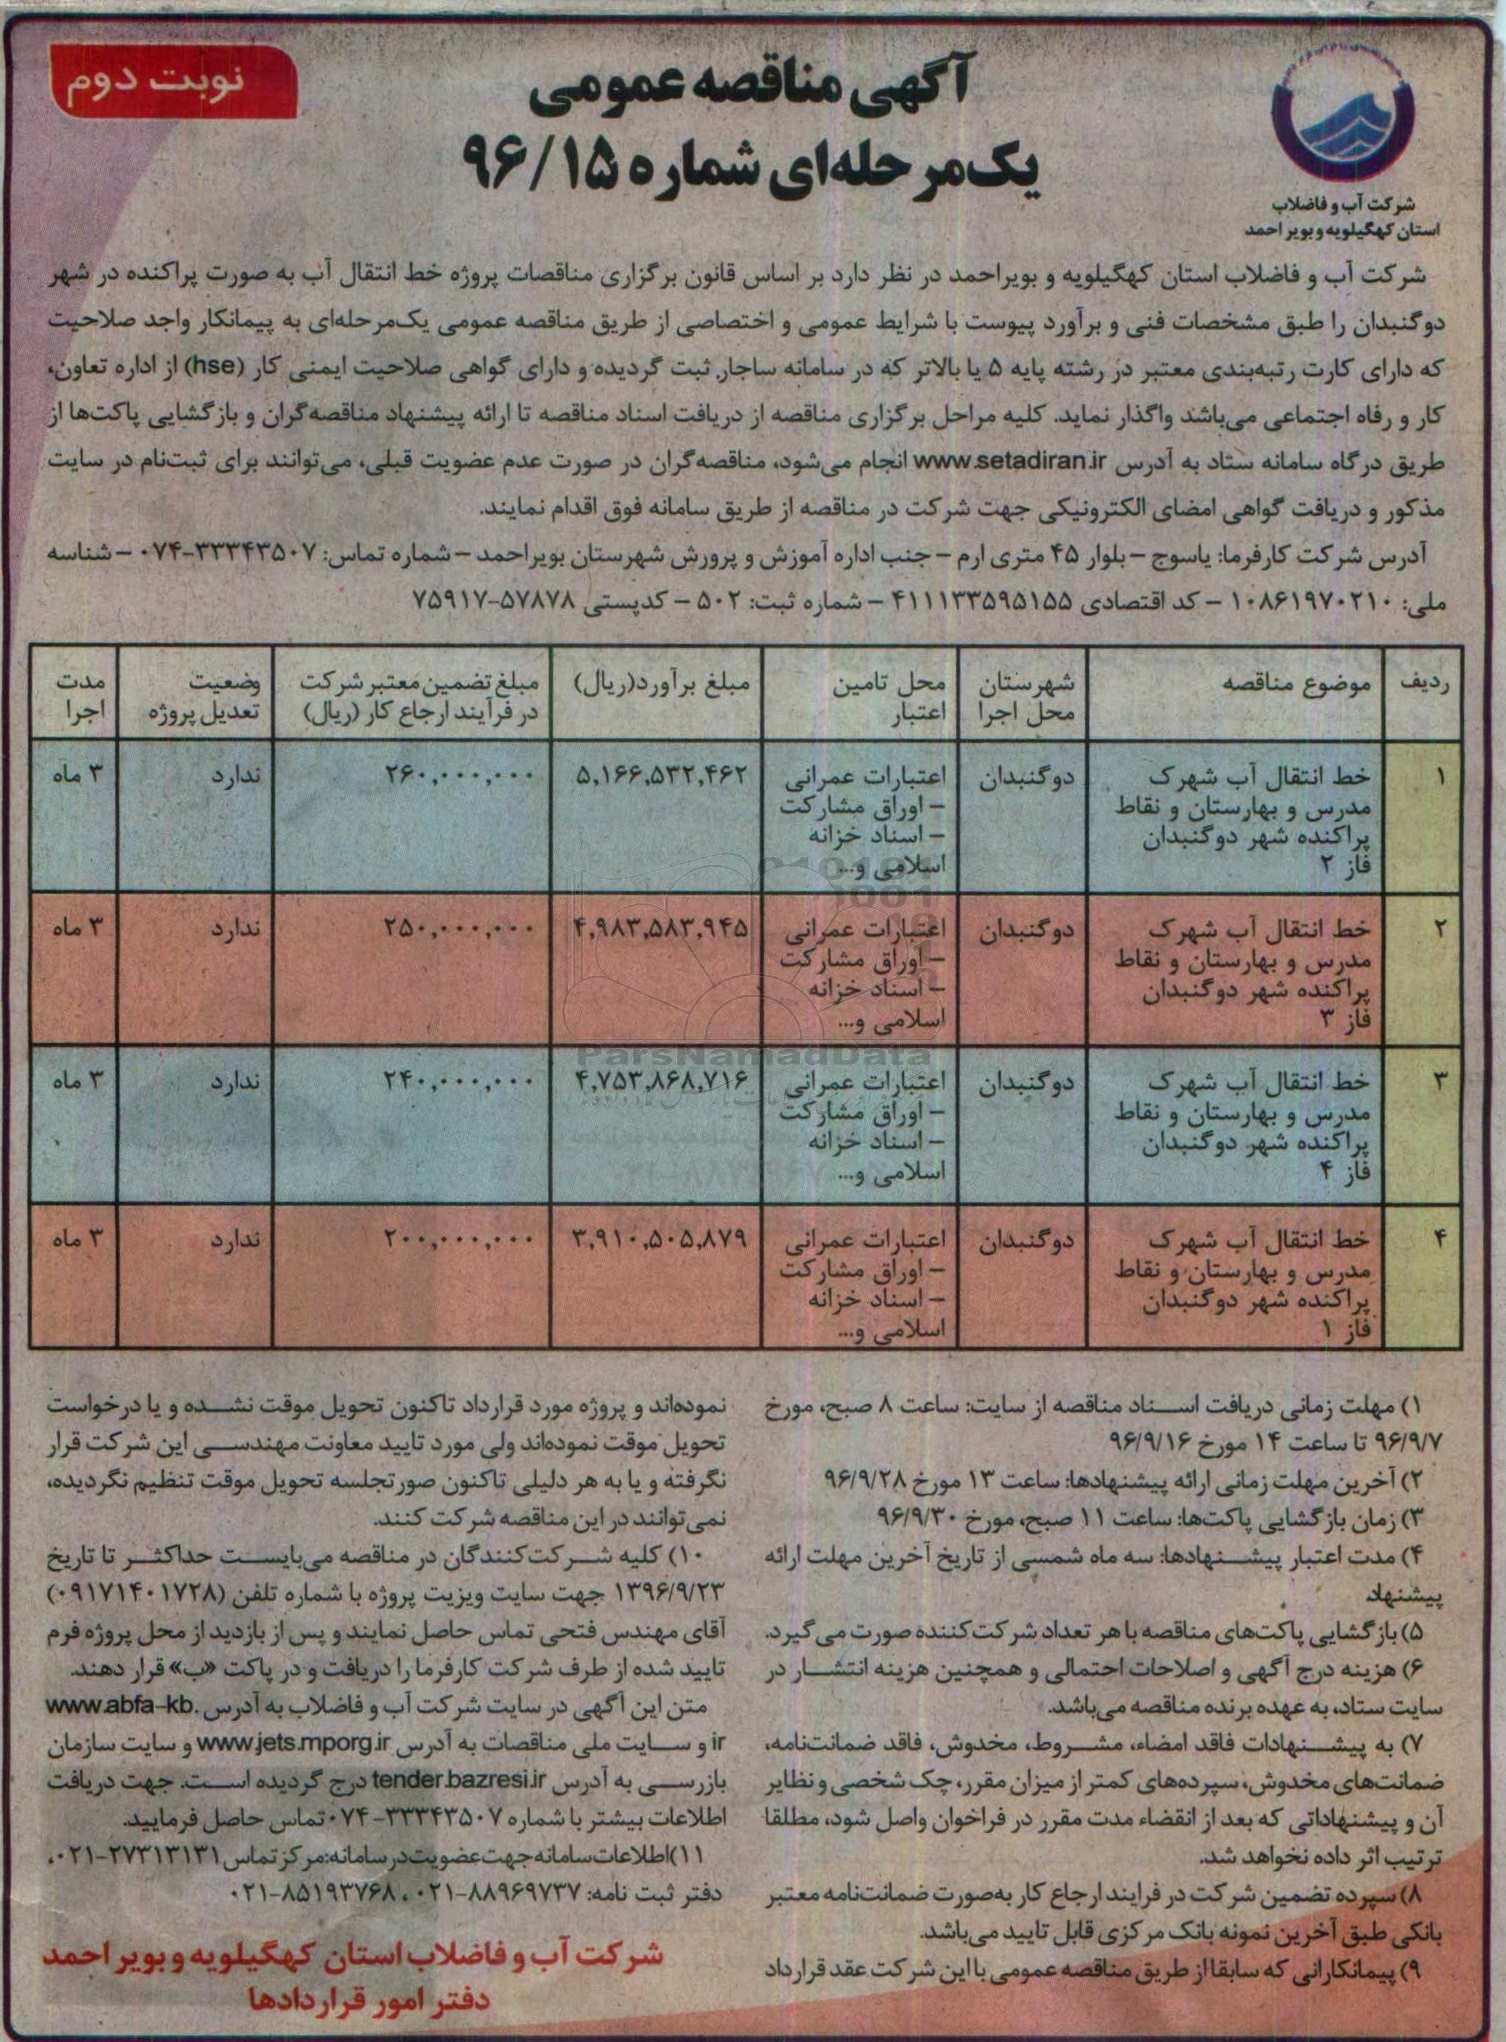 نوبت دوم
آگهی مناقصه عمومی
یک‌مرحله‌ای شماره ۹۶/۱۵
شرکت آب و فاضلاب
استان کهگیلویه و بویراحمد
شرکت آب و فاضلاب استان کهگیلویه و بویراحمد در نظر دارد بر اساس قانون برگزاری مناقصات پروژه خط انتقال آب به صورت پراکنده در شهر
دوگنبدان را طبق مشخصات فنی و برآورد پیوست با شرایط عمومی و اختصاصی از طریق مناقصه عمومی یک‌مرحله‌ای به پیمانکار واجد صلاحیت
که دارای کارت رتبه‌بندی معتبر در رشته پایه ۵ یا بالاتر که در سامانه ساجار ثبت گردیده و دارای گواهی صلاحیت ایمنی کار (hse) از اداره تعاون،
کار و رفاه اجتماعی می‌باشد واگذار نماید. کلیه مراحل برگزاری مناقصه از دریافت اسناد مناقصه تا ارائه پیشنهاد مناقصه‌گران و بازگشایی پاکت‌ها از
طریق درگاه سامانه ستاد به آدرس www.setadiran.ir انجام می‌شود، مناقصه‌گران در صورت عدم عضویت قبلی، می‌توانند برای ثبت‌نام در سایت
مذکور و دریافت گواهی امضای الکترونیکی جهت شرکت در مناقصه از طریق سامانه فوق اقدام نمایند.
آدرس شرکت کارفرما: یاسوج – بلوار ۴۵ متری ارم – جنب اداره آموزش و پرورش شهرستان بویراحمد – شماره تماس: ۳۳۳۴۳۵۰۷-۰۷۴ – شناسه
ملی: ۱۰۸۶۱۹۷۰۲۱۰ – کد اقتصادی ۴۱۱۱۳۳۵۹۵۱۵۵ – شماره ثبت: ۵۰۲ – کدپستی ۵۷۸۷۸-۷۵۹۱۷
ردیف موضوع مناقصه شهرستان محل اجرا محل تامین اعتبار مبلغ برآورد(ریال) مبلغ تضمین معتبر شرکت در فرآیند ارجاع کار (ریال) وضعیت تعدیل پروژه مدت اجرا
۱ خط انتقال آب شهرک دوگنبدان اعتبارات عمرانی ۵,۱۶۶,۵۳۲,۴۶۲ ۲۶۰,۰۰۰,۰۰۰ ندارد ۳ ماه
مدرس و بهارستان و نقاط – اوراق مشارکت
پراکنده شهر دوگنبدان – اسناد خزانه
فاز ۲ اسلامی و...
۲ خط انتقال آب شهرک دوگنبدان اعتبارات عمرانی ۴,۹۸۳,۵۸۳,۹۴۵ ۲۵۰,۰۰۰,۰۰۰ ندارد ۳ ماه
مدرس و بهارستان و نقاط – اوراق مشارکت
پراکنده شهر دوگنبدان – اسناد خزانه
فاز ۳ اسلامی و...
ParsNamadData
۳ خط انتقال آب شهرک دوگنبدان اعتبارات عمرانی ۴,۷۵۳,۸۶۸,۷۱۶ ۲۴۰,۰۰۰,۰۰۰ ندارد ۳ ماه
مدرس و بهارستان و نقاط – اوراق مشارکت
پراکنده شهر دوگنبدان – اسناد خزانه
فاز ۴ اسلامی و...
۴ خط انتقال آب شهرک دوگنبدان اعتبارات عمرانی ۳,۹۱۰,۵۰۵,۸۷۹ ۲۰۰,۰۰۰,۰۰۰ ندارد ۳ ماه
مدرس و بهارستان و نقاط – اوراق مشارکت
پراکنده شهر دوگنبدان – اسناد خزانه
فاز ۱ اسلامی و...
۱) مهلت زمانی دریافت اسناد مناقصه از سایت: ساعت ۸ صبح، مورخ
۹۶/۹/۷ تا ساعت ۱۴ مورخ ۹۶/۹/۱۶
۲) آخرین مهلت زمانی ارائه پیشنهادها: ساعت ۱۳ مورخ ۹۶/۹/۲۸
۳) زمان بازگشایی پاکت‌ها: ساعت ۱۱ صبح، مورخ ۹۶/۹/۳۰
۴) مدت اعتبار پیشنهادها: سه ماه شمسی از تاریخ آخرین مهلت ارائه
پیشنهاد.
۵) بازگشایی پاکت‌های مناقصه با هر تعداد شرکت‌کننده صورت می‌گیرد.
۶) هزینه درج آگهی و اصلاحات احتمالی و همچنین هزینه انتشار در
سایت ستاد، به عهده برنده مناقصه می‌باشد.
۷) به پیشنهادات فاقد امضاء، مشروط، مخدوش، فاقد ضمانت‌نامه،
ضمانت‌های مخدوش، سپرده‌های کمتر از میزان مقرر، چک شخصی و نظایر
آن و پیشنهاداتی که بعد از انقضاء مدت مقرر در فراخوان واصل شود، مطلقا
ترتیب اثر داده نخواهد شد.
۸) سپرده تضمین شرکت در فرایند ارجاع کار به‌صورت ضمانت‌نامه معتبر
بانکی طبق آخرین نمونه بانک مرکزی قابل تایید می‌باشد.
۹) پیمانکارانی که سابقا از طریق مناقصه عمومی با این شرکت عقد قرارداد
نموده‌اند و پروژه مورد قرارداد تاکنون تحویل موقت نشده و یا درخواست
تحویل موقت نموده‌اند ولی مورد تایید معاونت مهندسی این شرکت قرار
نگرفته و یا به هر دلیلی تاکنون صورتجلسه تحویل موقت تنظیم نگردیده،
نمی‌توانند در این مناقصه شرکت کنند.
۱۰) کلیه شرکت‌کنندگان در مناقصه می‌بایست حداکثر تا تاریخ
۱۳۹۶/۹/۲۳ جهت سایت ویزیت پروژه با شماره تلفن (۰۹۱۷۱۴۰۱۷۲۸)
آقای مهندس فتحی تماس حاصل نمایند و پس از بازدید از محل پروژه فرم
تایید شده از طرف شرکت کارفرما را دریافت و در پاکت «ب» قرار دهند.
متن این آگهی در سایت شرکت آب و فاضلاب به آدرس www.abfa-kb.
ir و سایت ملی مناقصات به آدرس www.jets.mporg.ir و سایت سازمان
بازرسی به آدرس tender.bazresi.ir درج گردیده است. جهت دریافت
اطلاعات بیشتر با شماره ۳۳۳۴۳۵۰۷-۰۷۴ تماس حاصل فرمایید.
۱۱) اطلاعات سامانه جهت عضویت در سامانه: مرکز تماس ۲۷۳۱۳۱۳۱-۰۲۱،
دفتر ثبت نامه: ۸۸۹۶۹۷۳۷-۰۲۱ ، ۸۵۱۹۳۷۶۸-۰۲۱
شرکت آب و فاضلاب استان کهگیلویه و بویراحمد
دفتر امور قراردادها